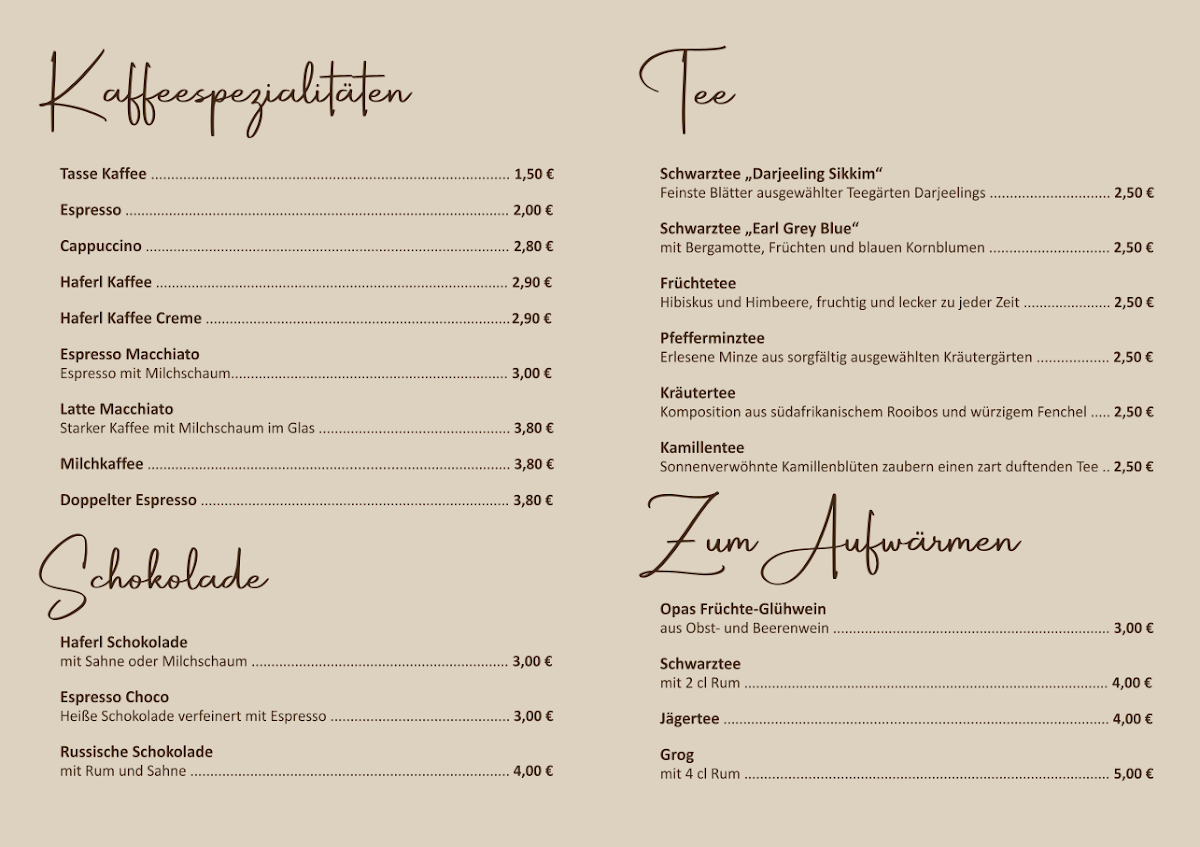 Kaffeespezialitäten
Tasse Kaffee ........................................................................................ 1,50 €
Espresso .............................................................................................. 2,00 €
Cappuccino ......................................................................................... 2,80 €
Haferl Kaffee ....................................................................................... 2,90 €
Haferl Kaffee Creme ...........................................................................2,90 €
Espresso Macchiato
Espresso mit Milchschaum.................................................................... 3,00 €
Latte Macchiato
Starker Kaffee mit Milchschaum im Glas ............................................... 3,80 €
Milchkaffee ......................................................................................... 3,80 €
Doppelter Espresso ............................................................................ 3,80 €
Schokolade
Haferl Schokolade
mit Sahne oder Milchschaum ............................................................... 3,00 €
Espresso Choco
Heiße Schokolade verfeinert mit Espresso ............................................ 3,00 €
Russische Schokolade
mit Rum und Sahne .............................................................................. 4,00 €
Tee
Schwarztee „Darjeeling Sikkim“
Feinste Blätter ausgewählter Teegärten Darjeelings .............................. 2,50 €
Schwarztee „Earl Grey Blue“
mit Bergamotte, Früchten und blauen Kornblumen .............................. 2,50 €
Früchtetee
Hibiskus und Himbeere, fruchtig und lecker zu jeder Zeit ..................... 2,50 €
Pfefferminztee
Erlesene Minze aus sorgfältig ausgewählten Kräutergärten .................. 2,50 €
Kräutertee
Komposition aus südafrikanischem Rooibos und würzigem Fenchel ..... 2,50 €
Kamillentee
Sonnenverwöhnte Kamillenblüten zaubern einen zart duftenden Tee .. 2,50 €
Zum Aufwärmen
Opas Früchte-Glühwein
aus Obst- und Beerenwein .................................................................... 3,00 €
Schwarztee
mit 2 cl Rum ......................................................................................... 4,00 €
Jägertee ............................................................................................... 4,00 €
Grog
mit 4 cl Rum .......................................................................................... 5,00 €